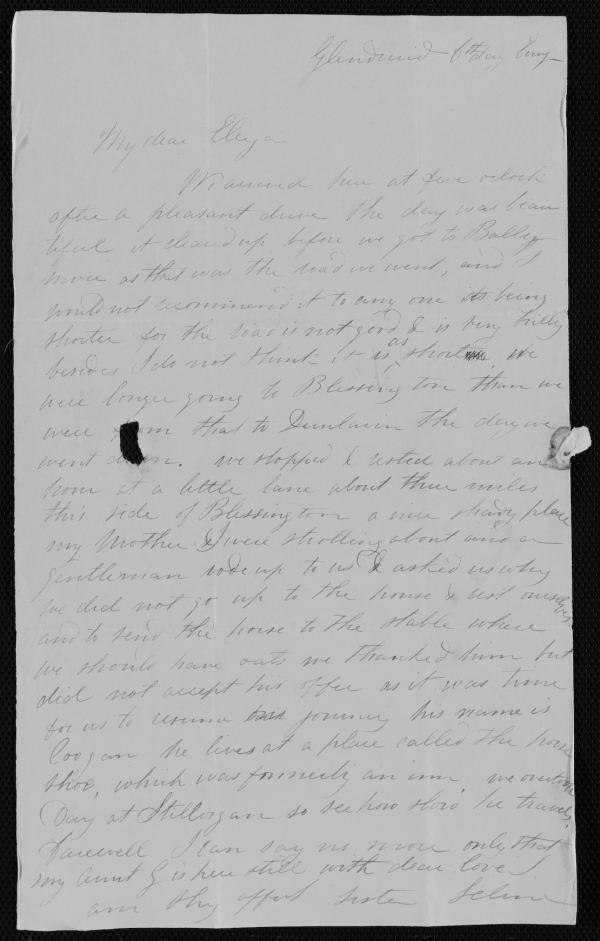 Glendruid 6th day Evng
My dear Eliza
We arrived here at five oclock
after a pleasant drive the day was beau
tiful it cleared up before we got to Bally
more as that was the road we went, and I
would not recommend it to any one its being
shorter for the road is not good & is very hilly
besides I do not think it is as short we
were longer going to Blessington than we
were from that to Dunlavin the day we
went down. we stopped & rested about an
hour at a little lane about three miles
this side of Blessington a nice shady place
my Mother & I were strolling about and a
gentleman rode up to us & asked us why
we did not go up to the house & rest ourselves
and to send the horse to the stable where
we should have oats we thanked him but
did not accept his offer as it was time
for us to resume journey his name is
Coogan he lives at a place called the horse
shoe, which was formerly an inn, we overtook
Day at Stillorgan so see how slow he travels,
Farewell I can say no more only that
my Aunt G is here still with dear love I
am thy affect sister Selina